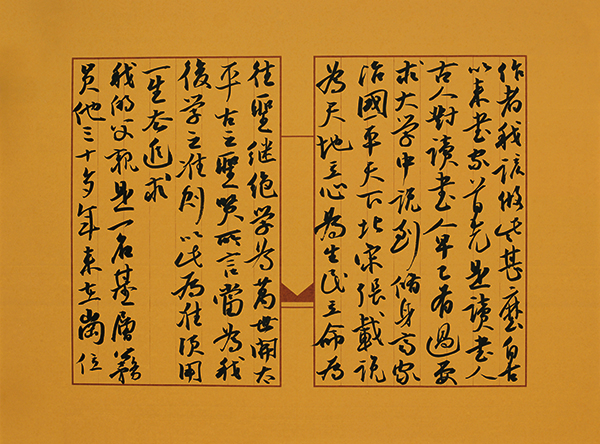 作者我該做些甚麼自古
以来書家首先是讀書人
古人對讀書人早已有過要
求大学中说到修身齐家
治國平天下北宋張載说
為天地立心為生民立命為
往聖继绝学為萬世開太
平古之聖賢所言當為我
後学之准则以此為任须用
一生去追求
我的父親是一名基層警
员他三十多年来在崗位